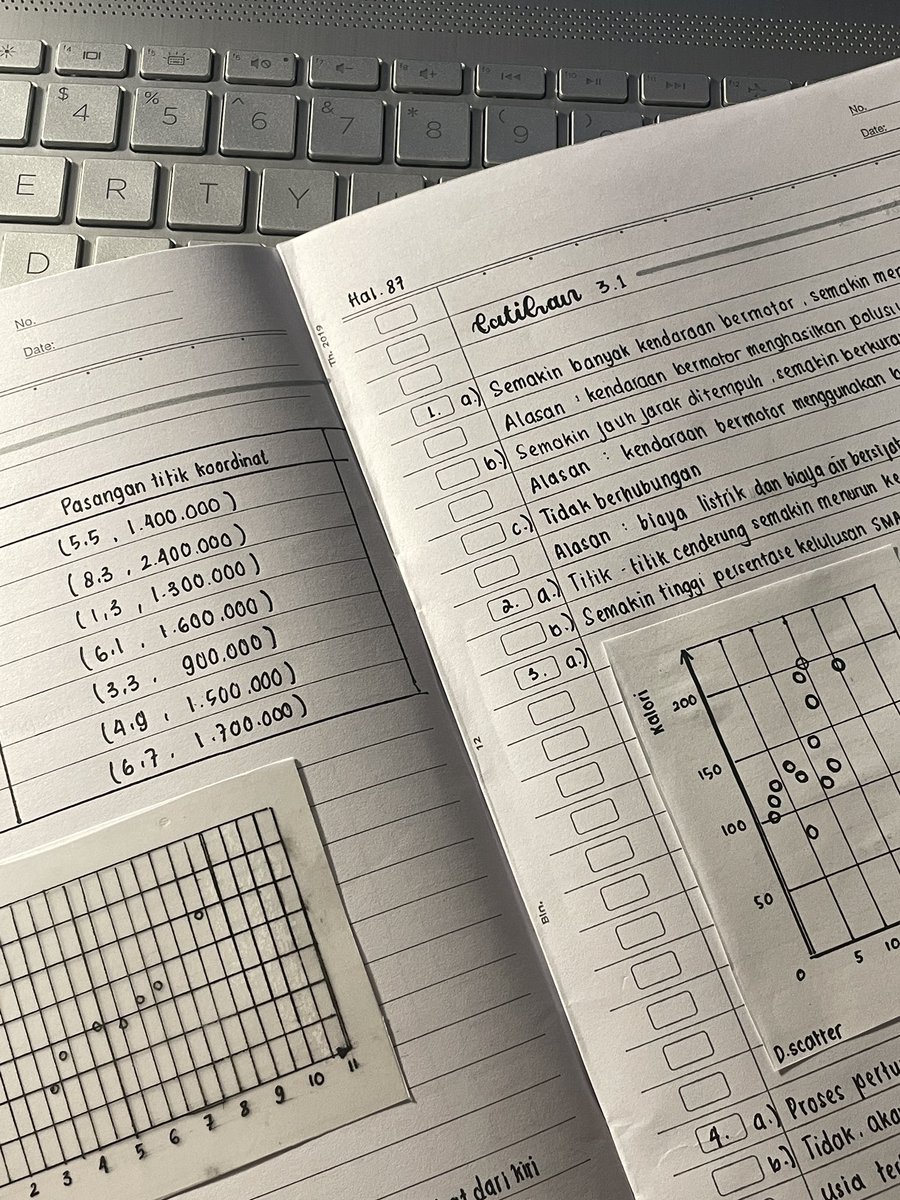 f4
f5
f6
f7
f8
f9
f10
f11
f12
$ 4
% 5
^ 6
& 7
* 8
( 9
)
E
R
T
Y
D
No.
Date:
Pasangan titik koordinat
(5.5 , 1.400.000)
(8.3 , 2.400.000)
(1,3 , 1.300.000)
(6.1 , 1.600.000)
(3.3 , 900.000)
(4.9 , 1.500.000)
(6.7 , 1.700.000)
2 3 4 5 6 7 8 9 10 11
dari kiri
No.
Date:
Th. 2019
12
Bln.
Hal. 87
Latihan 3.1
1. a.) Semakin banyak kendaraan bermotor , semakin
Alasan : kendaraan bermotor menghasilkan polusi
b.) Semakin jauh jarak ditempuh , semakin
Alasan : kendaraan bermotor menggunakan
c.) Tidak berhubungan
Alasan : biaya listrik dan biaya air
2. a.) Titik - titik cenderung semakin menurun
b.) Semakin tinggi persentase kelulusan SMA
3. a.)
Kalori
200
150
100
50
0 5 10
D.scatter
4. a.) Proses
b.) Tidak,
usia